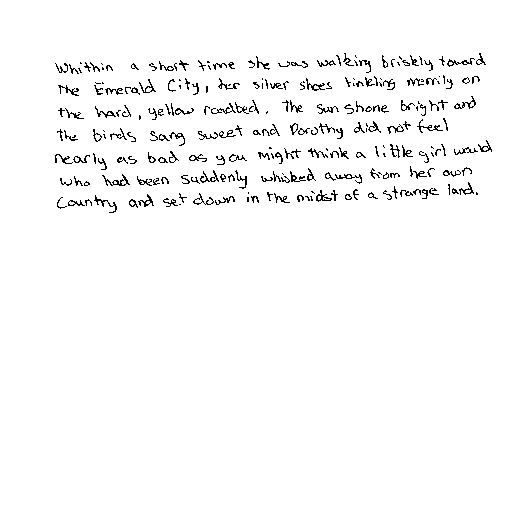 Whithin a short time she was walking briskly toward
the Emerald City, her silver shoes tinkling merrily on
the hard, yellow roadbed. The sun shone bright and
the birds sang sweet and Dorothy did not feel
nearly as bad as you might think a little girl would
who had been suddenly whisked away from her own
Country and set down in the midst of a strange land.